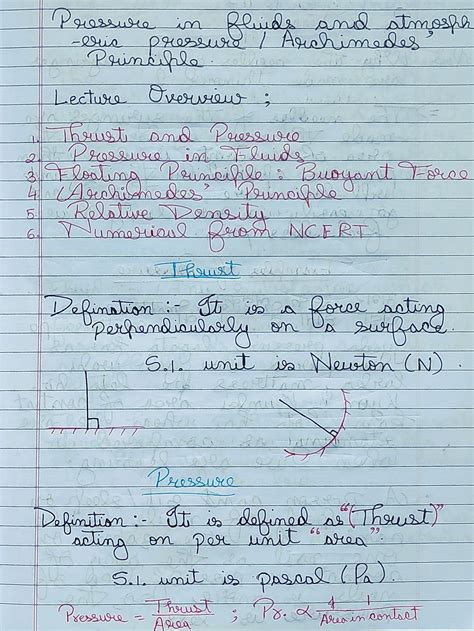 Pressure in fluids and atmosph
-eric pressure / Archimedes'
Principle.
Lecture Overview ;
1. Thrust and Pressure
2. Pressure in Fluids
3. Floating Principle : Buoyant Force
4. (Archimedes' Principle
5. Relative Density
6. Numerical from NCERT
Thrust
Defination :- It is a force acting
perpendicularly on a surface.
S.I. unit is Newton (N).
Pressure
Definition :- It is defined as "(Thrust)"
acting on per unit "area".
S.I. unit is pascal (Pa).
Pressure = Thrust / Area ; Pr. ∝ 1 / Area in contact